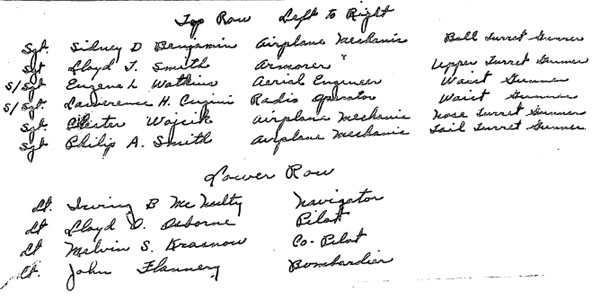 Top Row Left to Right
Sgt. Sidney D Benjamin Airplane Mechanic Ball Turret Gunner
Sgt Lloyd T. Smith Armorer " Upper Turret Gunner
S/Sgt Eugene L Watkins Aerial Engineer Waist Gunner
S/Sgt. Lawerence H. Radio Operator Waist Gunner
Sgt. Chester Wojcik Airplane Mechanic Nose Turret Gunner
Sgt Philip A. Smith Airplane Mechanic Tail Turret Gunner
Lower Row
Lt. Irving B McNulty Navigator
Lt Lloyd O. Osborne Pilot
Lt Melvin S. Krasnow Co-Pilot
Lt. John Flannery Bombardier